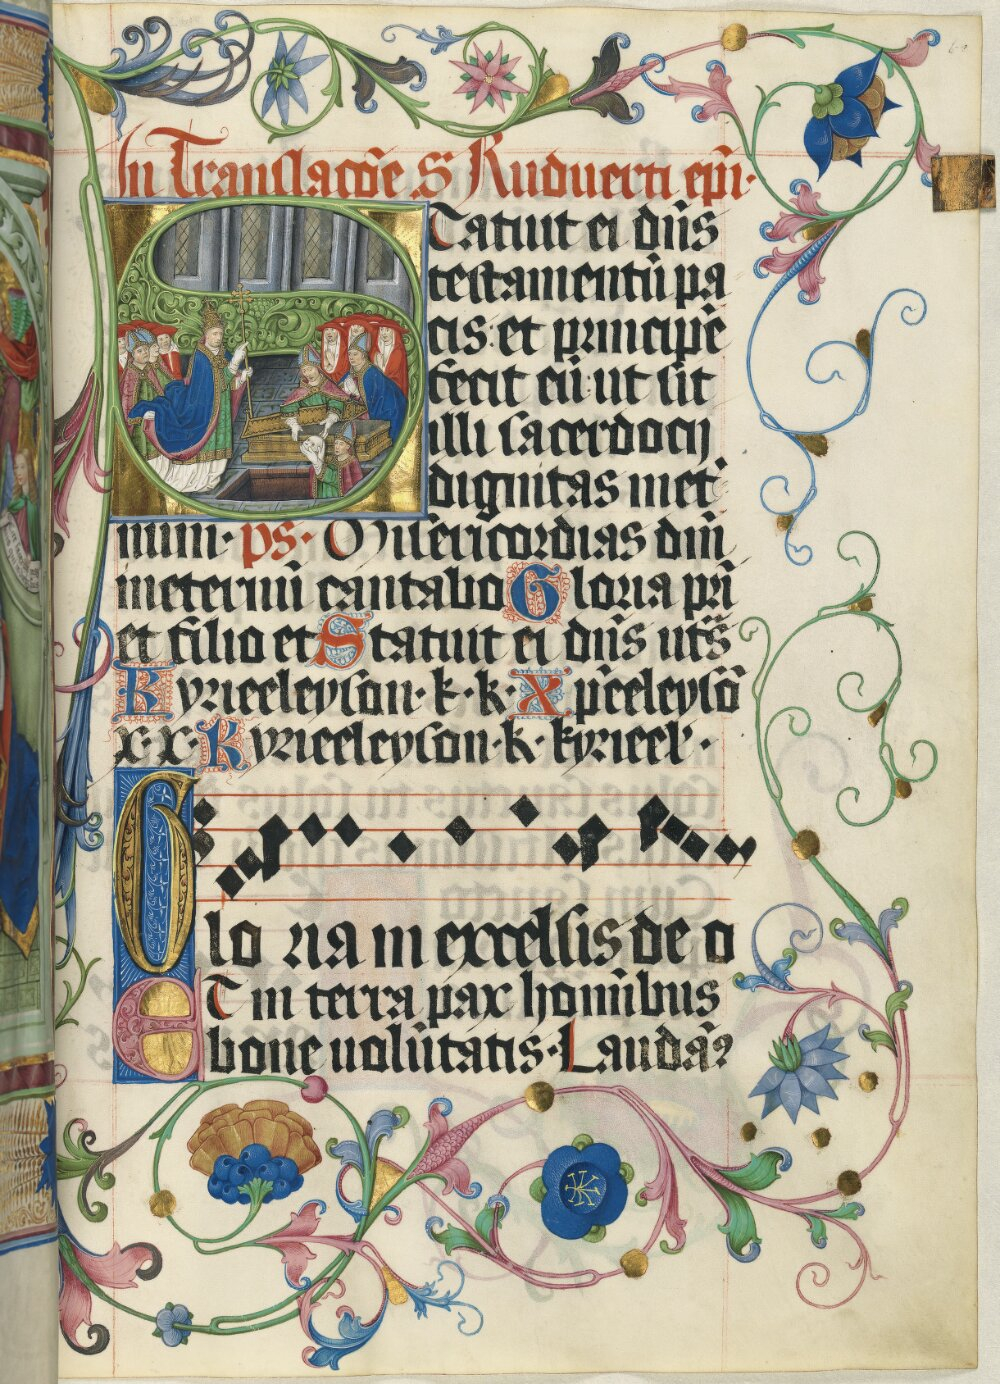 In Translacōe S Ruduerti epī·
STatuit ei dn̄s
testamentū pa
cis·et principē
fecit eū·ut sit
illi sacerdocij
dignitas in et
num· ps· Misericordias dn̄i
in eternū cantabo Gloria pr̄i
et filio et Statuit ei dn̄s ut s̄
Kyrieeleyson·k·k·Xp̄eeleysō
x·x·Kyrieeleyson·k·kyrieel·
Glo ria in excelsis de o
ET in terra pax hom̄ibus
bone uolūtatis·Laudāꝰ